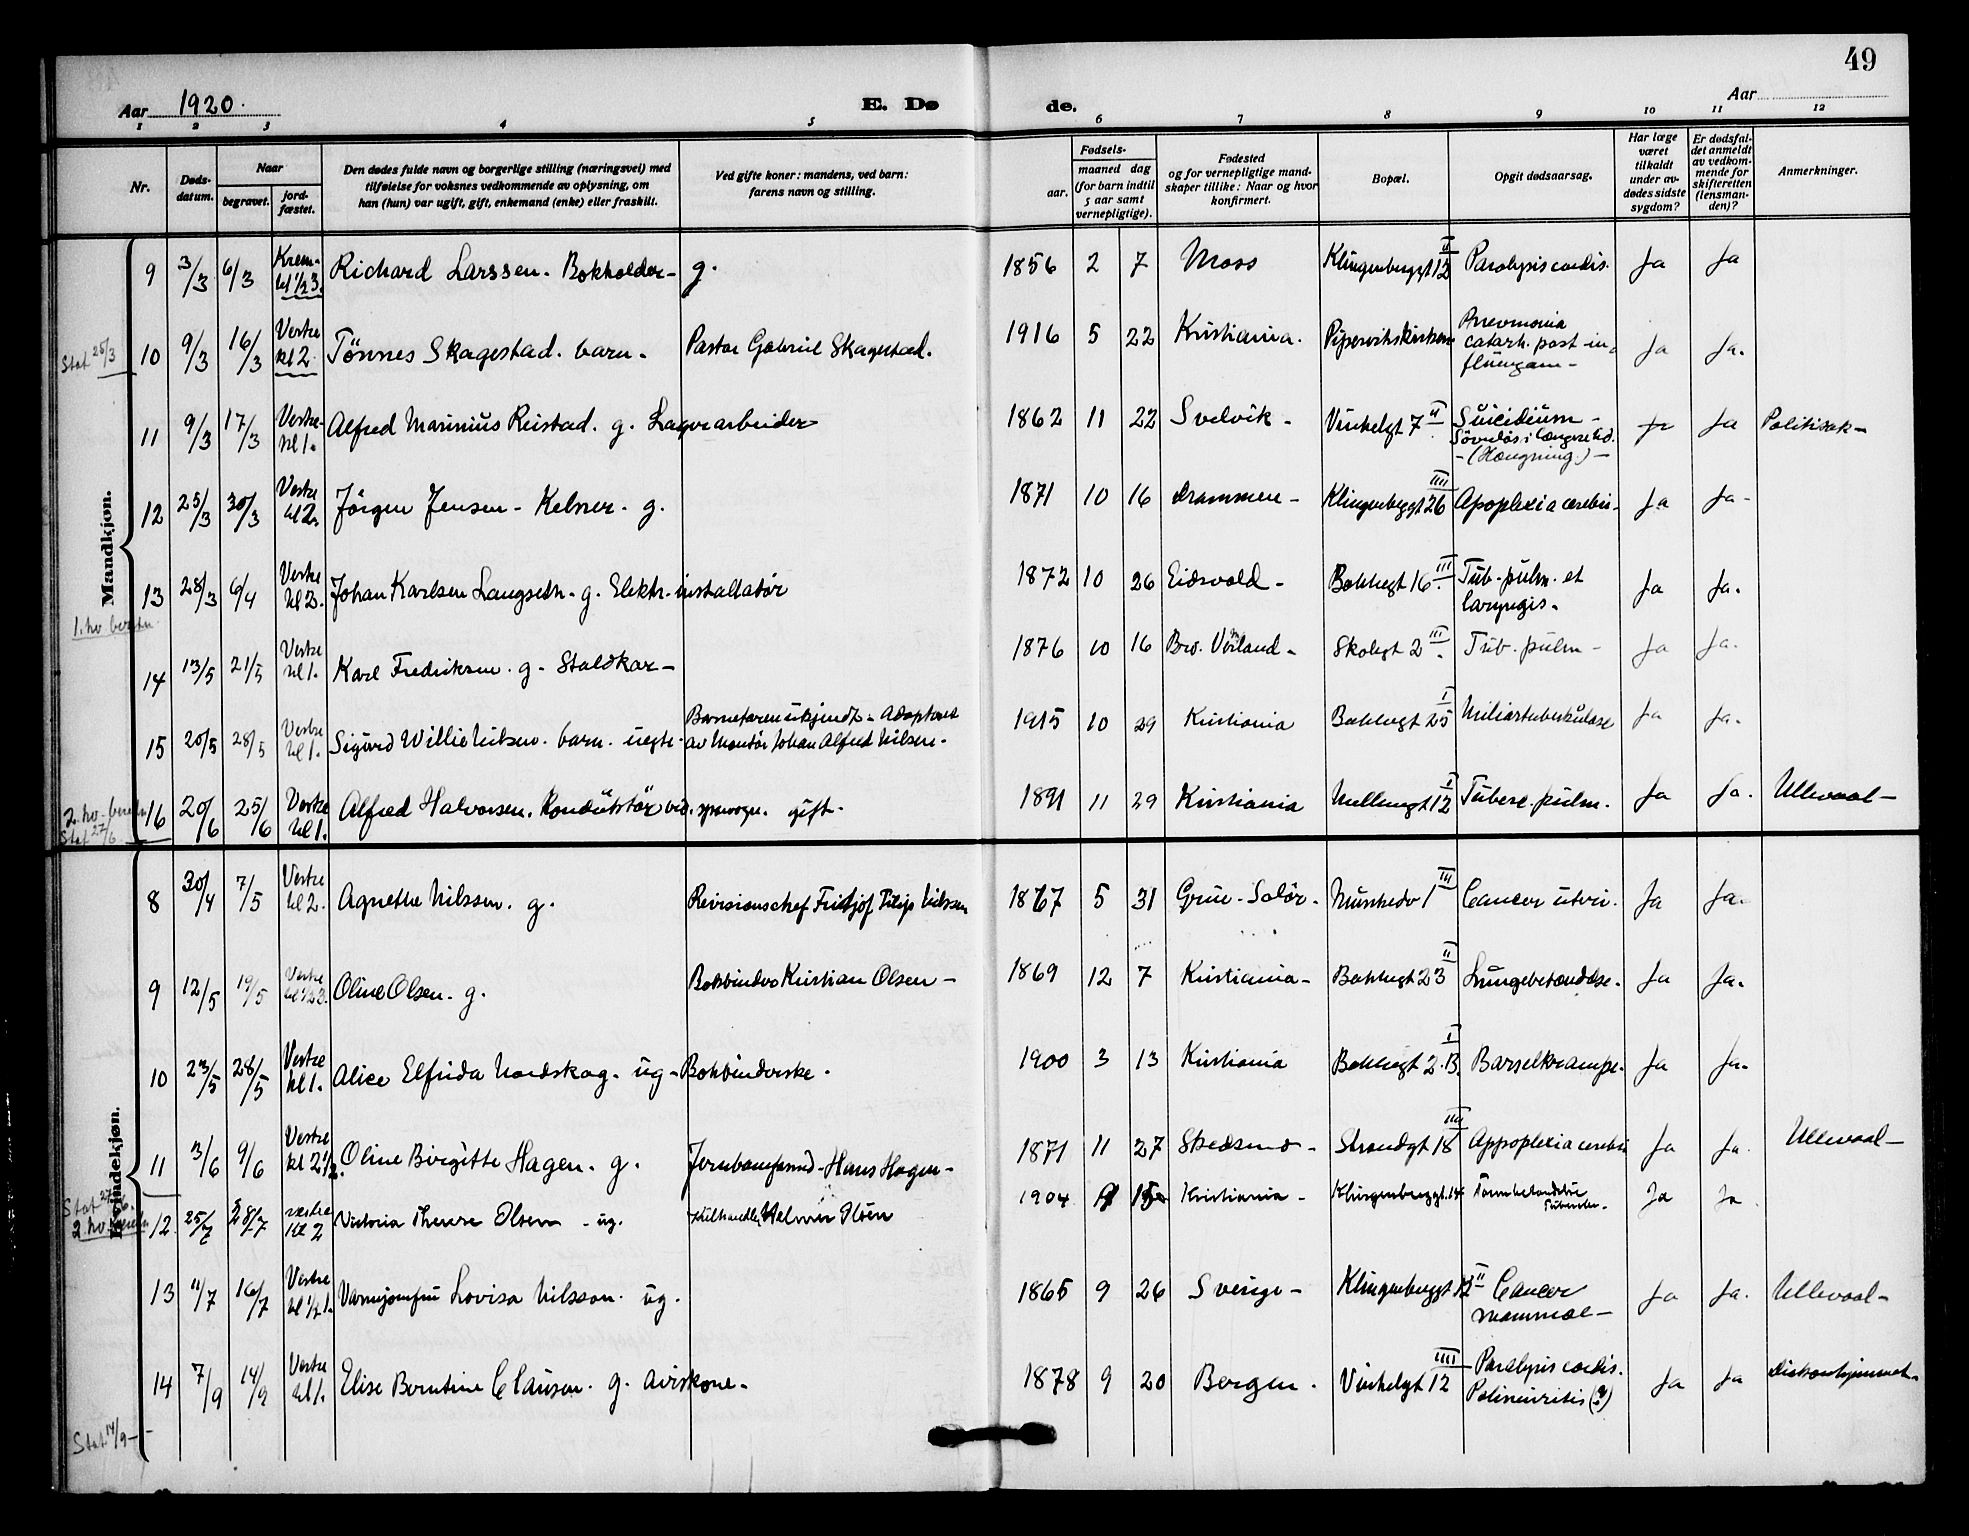 49
Aar 1920. E. Dø de. Aar
1 2 3 4 5 6 7 8 9 10 11 12
Nr.
Døds-
datum.
Naar
begravet.
jord-
fæstet.
Den dødes fulde navn og borgerlige stilling (næringsvei) med
tilføielse for voksnes vedkommende av oplysning, om
han (hun) var ugift, gift, enkemand (enke) eller fraskilt.
Ved gifte koner: mandens, ved barn:
farens navn og stilling.
Fødsels-
aar.
maaned dag
(for barn indtil
5 aar samt
vernepligtige).
Fødested
og for vernepligtige mand-
skaper tillike: Naar og hvor
konfirmert.
Bopæl.
Opgit dødsaarsag.
Har læge
været
tilkaldt
under av-
dødes sidste
sygdom?
Er dødsfal-
det anmeldt
av vedkom-
mende for
skifteretten
(lensman-
den)?
Anmerkninger.
Mandkjøn.
9 3/3 6/3 Krem. kl 1/2 3. Richard Larssen. Bokholder - g. 1856 2 7 Moss Klingenberggt 12 II Paralysis cordis. Ja Ja
Stat 25/3
10 9/3 16/3 Vestre kl 2. Tönnes Skagestad. barn. Pastor Gabriel Skagestad. 1916 5 22 Kristiania. Pipervikskirken Pnevmonia
catarh. post in-
fluenzam - Ja Ja.
11 9/3 17/3 Vestre kl 1. Alfred Marinius Reistad. g. Lagerarbeider 1862 11 22 Svelvik - Vinkelgt 7 II Suicidium -
Sövnløs i længere tid.
- (Hængning.) - Ja Ja Politisak -
12 25/3 30/3 Vestre kl 2. Jörgen Jensen - Kelner. g. 1871 10 16 Drammen - Klingenberggt 26 IIII Apoplexia cerebri - Ja Ja -
13 28/3 6/4 Vestre kl 2. Johan Karlsen Langseth - g. Elektr. installatør 1872 10 26 Eidsvold - Bakkegt 16 III Tub. pulm. et
laryngis. Ja Ja.
14 13/5 21/5 Vestre kl 1. Karl Fredriksen. g. Staldkar - 1876 10 16 Skolegt 2 III Tub. pulm - Ja Ja.
15 20/5 28/5 Vestre kl 1. Sigurd Willie Nilsen. barn. uegte. Barnefaren ukjendt - Adopteret
av Montör Johan Alfred Nilsen. 1915 10 29 Kristiania Bakkegt 25 I Miliærtuberkulose Ja Ja.
16 20/6 25/6 Vestre kl 1. Alfred Halvorsen. Konduktör ved sporvogn. gift. 1891 11 29 Kristiania 12 I Tuberc. pulm. Ja Ja. Ullevaal -
Stat 27/6
Kvindekjøn.
8 30/4 7/5 Vestre kl 2. Agnethe Nilssen. g. Revisionschef Fridtjof Filip Nilssen 1867 5 31 Grue - Solör. Munkedv 1 III Cancer uteri. Ja Ja.
9 12/5 19/5 Vestre Oline Olsen. g. Bokbinder Kristian Olsen - 1869 12 7 Kristiania - Bakkegt 23 II Lungebetændelse. Ja Ja.
10 23/5 28/5 Vestre kl 1. Alice Elfrida Nordskag. ug - Bokbinderske. 1900 3 13 Kristiania Bakkegt 2.B. I Barselkrampe. Ja Ja.
11 3/6 9/6 Vestre kl 2 1/2. Oline Birgitte Hagen. g. Hans Hagen - 1871 11 27 Skedsmo - Strandgt 18 III Appoplexia cerebri Ja Ja. Ullevaal -
12 28/7 vestre kl 2 Victoria Therese Olsen - ug. Kulhandler Halvor Olsen 1904 Kristiania - Klingenberggt. 14 Ja Ja
13 11/7 16/7 Vestre kl 1/2 1. Varmejomfru Lovisa Nilsson. ug. 1865 9 26 Sverige - Klingenberggt 12 II Cancer
mammae - Ja Ja. Ullevaal -
14 7/9 14/9 Vestre kl 1. Elise Berntine Clausen. g. aviskone. 1878 9 20 Bergen. Vinkelgt 12 IIII Paralysis cordis.
Polineuritis (?) Ja Ja Diakonhjemmet.
Stat 14/9 -